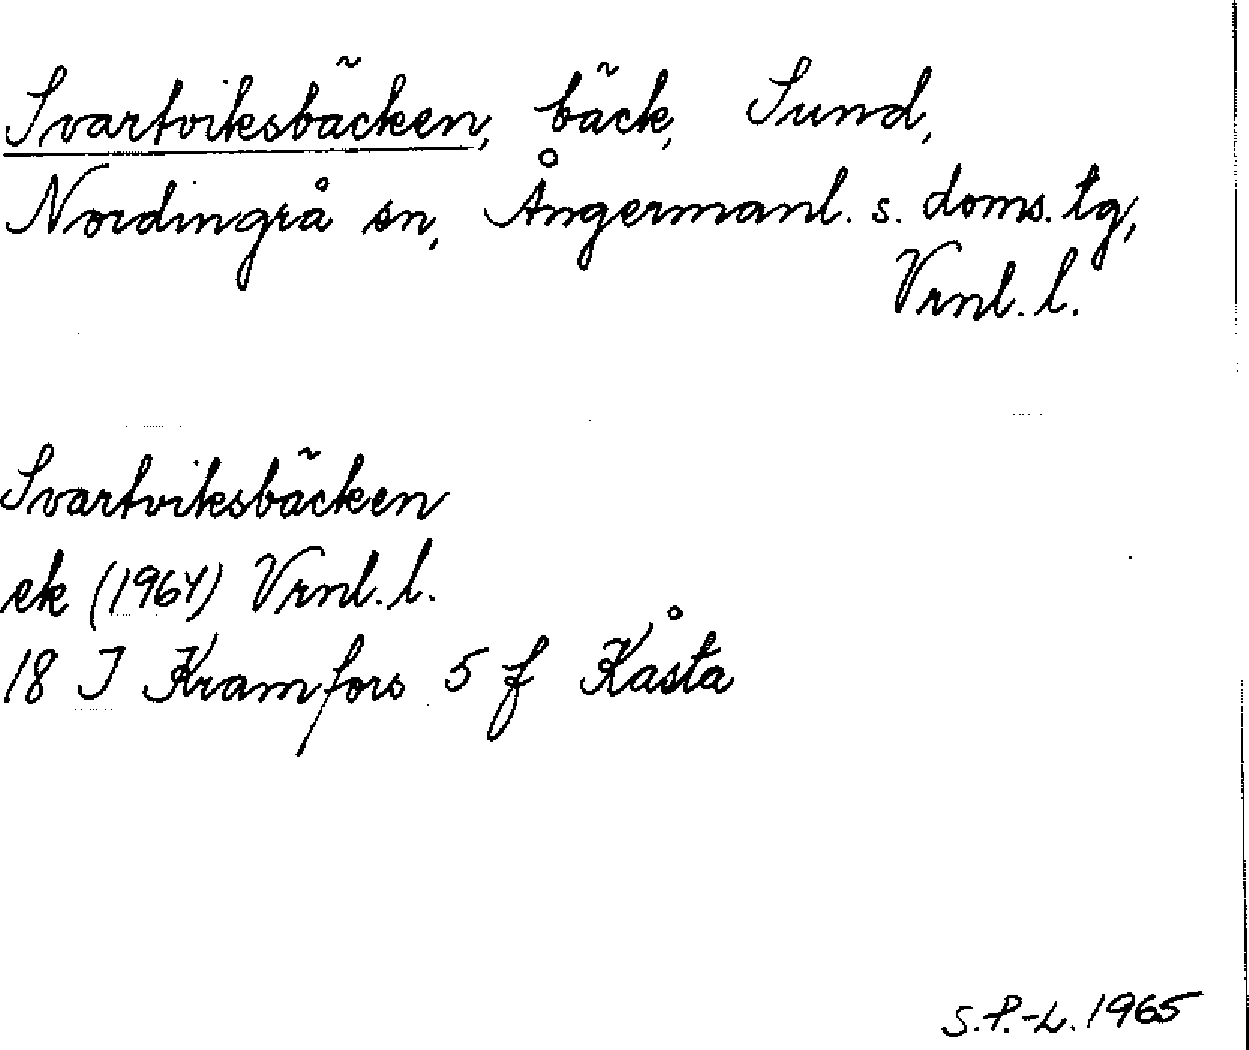 Svartviksbäcken, bäck, Sund,
Nordingrå sn, Ångermanl. s. doms. tg,
Vrnl. l.
Svartviksbäcken
ek (1964) Vrnl. l.
18 I Kramfors 5 f Kåsta
S.P.-L. 1965